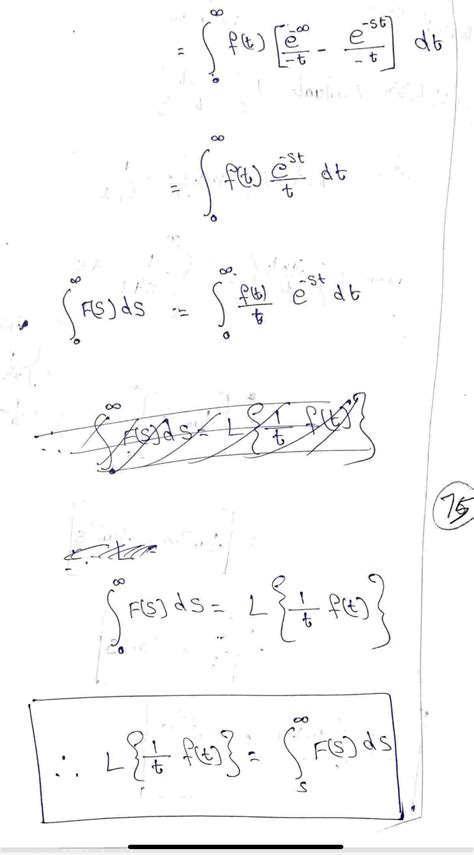 = ∫₀^∞ f(t) [ e^-∞/-t - e^-st/-t ] dt
= ∫₀^∞ f(t) e^-st/t dt
∫₀^∞ F(S) dS = ∫₀^∞ f(t)/t e^-st dt
∴ ∫₀^∞ F(S) dS = L{ 1/t f(t) }
75
∫₀^∞ F(S) dS = L{ 1/t f(t) }
∴ L{ 1/t f(t) } = ∫ₛ^∞ F(S) dS